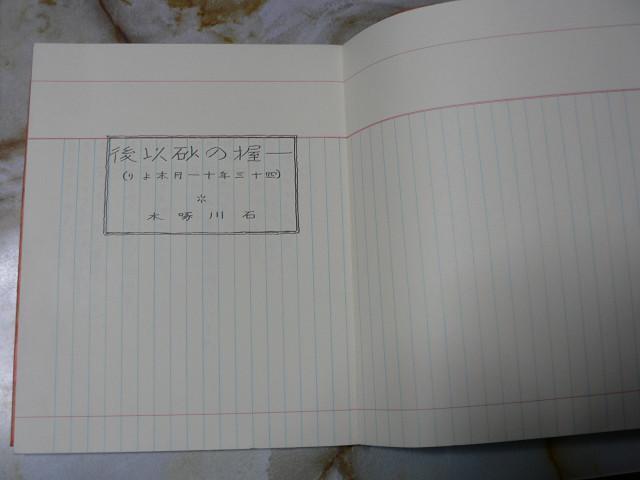 一握の砂以後
(四十三年十一月末より)
＊
石川啄木